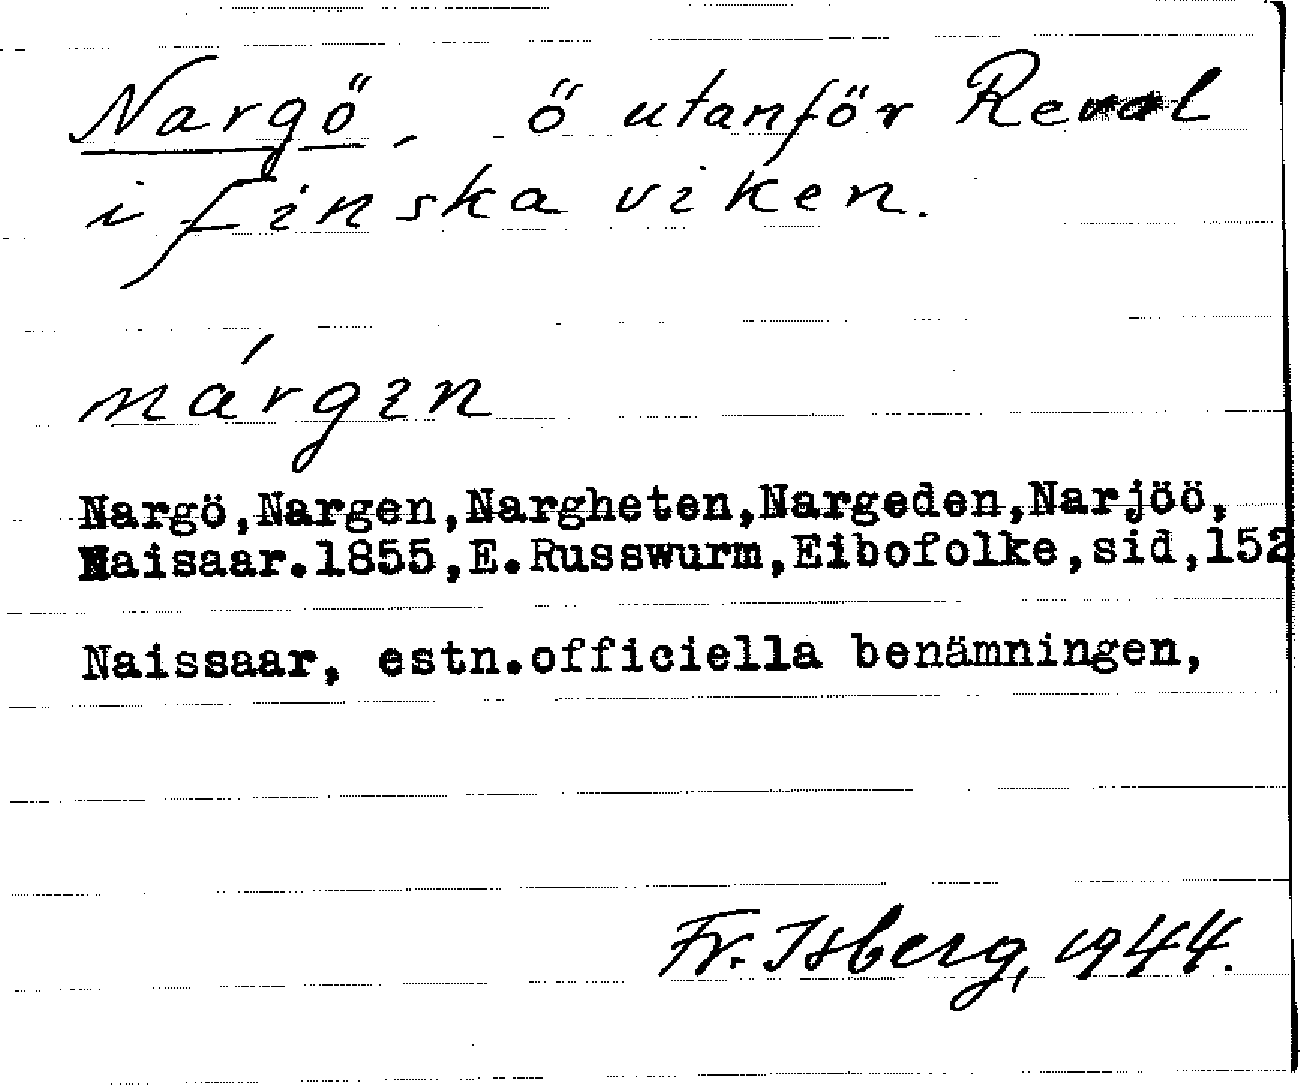 Nargö, ö utanför Reval
i finska viken.
nárgin
Nargö,Nargen,Nargheten,Nargeden,Narjöö,
Naisaar.1855,E.Russwurm,Eibofolke,sid,152
Naissaar, estn.officiella benämningen,
Fr. Isberg, 1944.